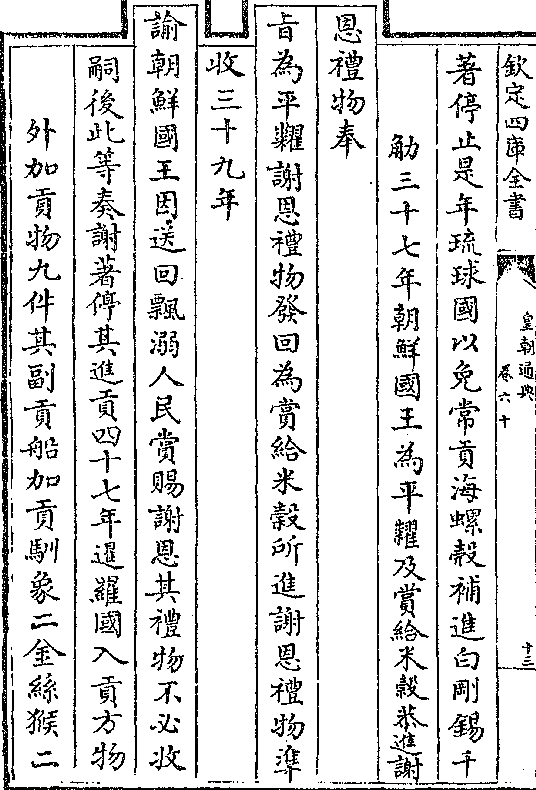 欽定四庫全書
皇朝通典
卷六十
十三
著停止是年琉球國以免常貢海螺殻補進白剛錫千
觔三十七年朝鮮國王為平糶及賞給米穀恭進謝
恩禮物奉
㫖為平糶謝恩禮物發回為賞給米穀所進謝恩禮物準
收三十九年
諭朝鮮國王因送回飄溺人民賞賜謝恩其禮物不必收
嗣後此等奏謝著停其進貢四十七年暹羅國入貢方物
外加貢物九件其副貢船加貢馴象二金絲猴二